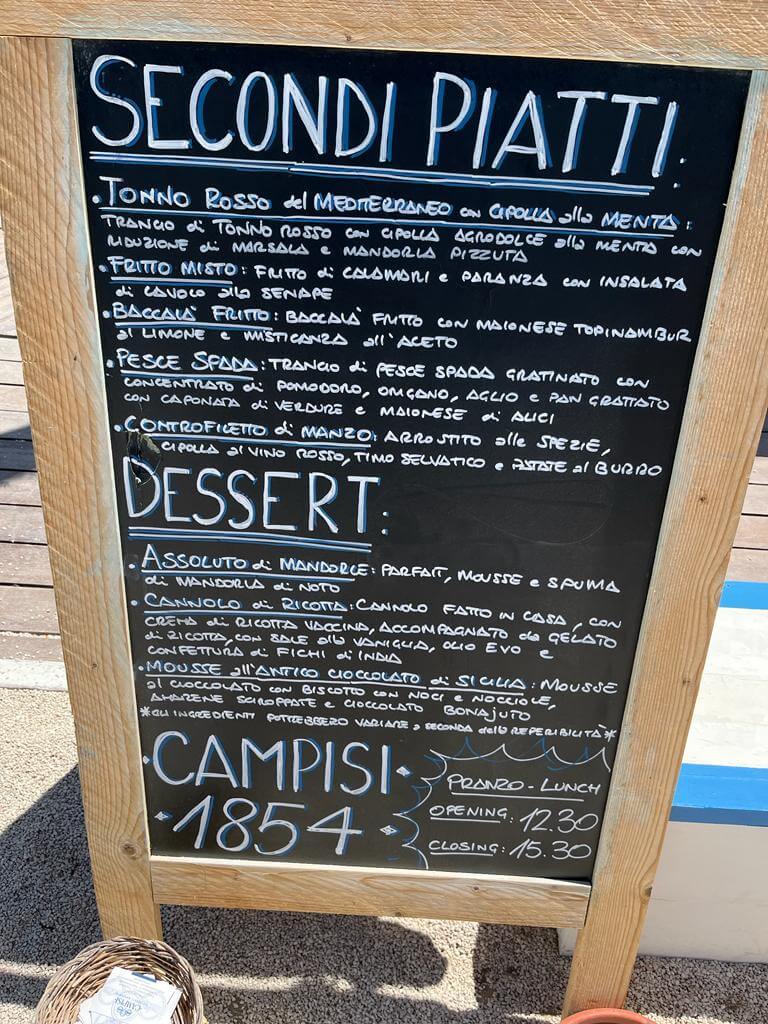 SECONDI PIATTI:
• TONNO ROSSO del MEDITERRANEO con CIPOLLA alla MENTA :
TRANCIO di TONNO ROSSO con CIPOLLA AGRODOLCE alla MENTA con
RIDUZIONE di MARSALA e MANDORLA PIZZUTA
• FRITTO MISTO : FRITTO di CALAMARI e PARANZA con INSALATA
di CAVOLO alla SENAPE
• BACCALA' FRITTO : BACCALA' FRITTO CON MAIONESE TOPINAMBUR
al LIMONE e MISTICANZA all'ACETO
• PESCE SPADA : TRANCIO di PESCE SPADA GRATINATO CON
CONCENTRATO di POMODORO, ORIGANO, AGLIO e PAN GRATTATO
CON CAPONATA di VERDURE e MAIONESE di ALICI
• CONTROFILETTO di MANZO: ARROSTITO alle SPEZIE,
CIPOLLA al VINO ROSSO, TIMO SELVATICO e PATATE al BURRO
DESSERT:
• ASSOLUTO di MANDORLE : PARFAIT, MOUSSE e SPUMA
di MANDORLA di NOTO
• CANNOLO di RICOTTA : CANNOLO FATTO IN CASA, CON
CREMA di RICOTTA VACCINA, ACCOMPAGNATO da GELATO
di RICOTTA, CON SALE alla VANIGLIA, OLIO EVO e
CONFETTURA di FICHI d'INDIA
• MOUSSE all'ANTICO CIOCCOLATO di SICILIA : MOUSSE
al CIOCCOLATO CON BISCOTTO CON NOCI e NOCCIOLE,
AMARENE SCIROPPATE e CIOCCOLATO BONAJUTO
*GLI INGREDIENTI POTREBBERO VARIARE a SECONDA della REPERIBILITÀ*
CAMPISI
• 1854 •
PRANZO - LUNCH
OPENING : 12.30
CLOSING : 15.30
CAMPISI